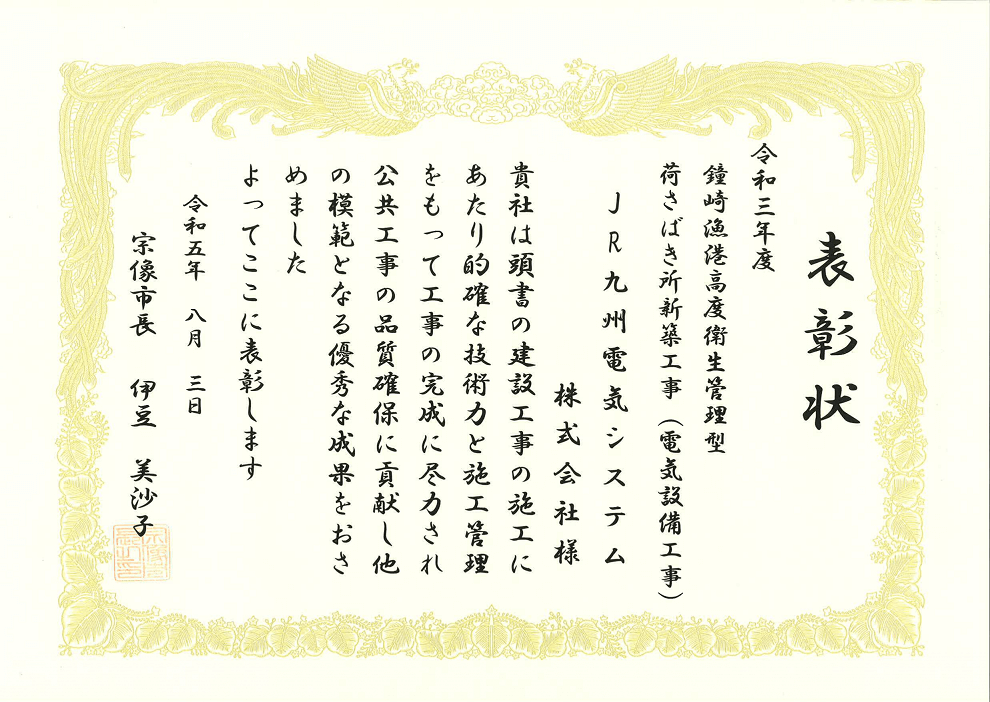 表彰状
令和三年度
鐘崎漁港高度衛生管理型
荷さばき所新築工事（電気設備工事）
JR九州電気システム
株式会社様
貴社は頭書の建設工事の施工に
あたり的確な技術力と施工管理
をもって工事の完成に尽力され
公共工事の品質確保に貢献し他
の模範となる優秀な成果をおさ
めました
よってここに表彰します
令和五年 八月 三日
宗像市長 伊豆 美沙子